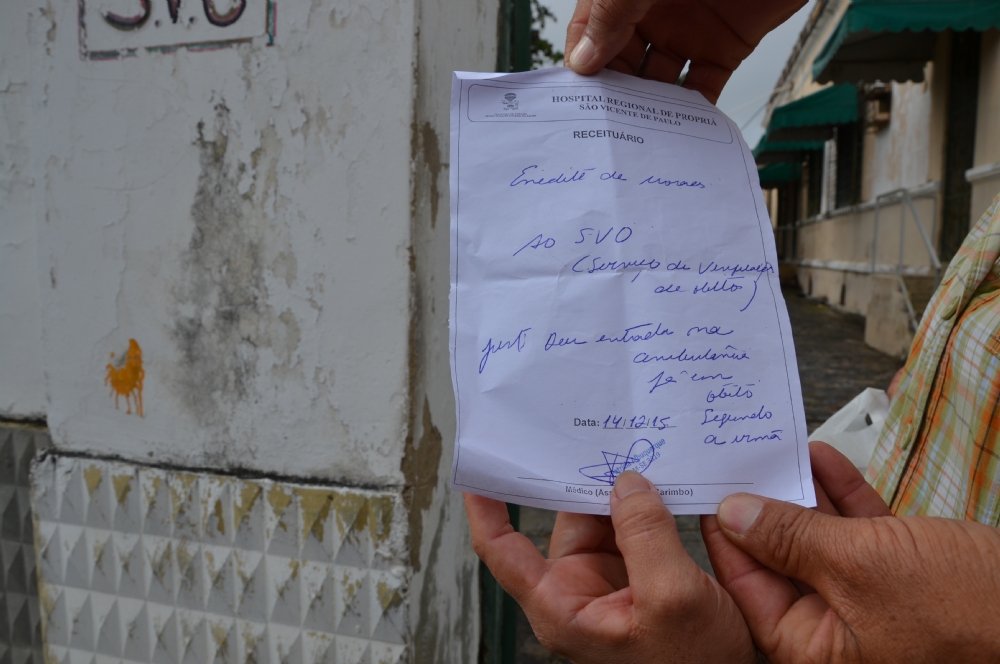 SVO
HOSPITAL REGIONAL DE PROPRIÁ
SÃO VICENTE DE PAULO
RECEITUÁRIO
Enedite de
Ao SVO
(Serviço de
de óbitos)
Just Deu entrada na
ambulância
já em
óbito
Segundo
a irmã
Data: 14/12/15
Médico (Ass
arimbo)